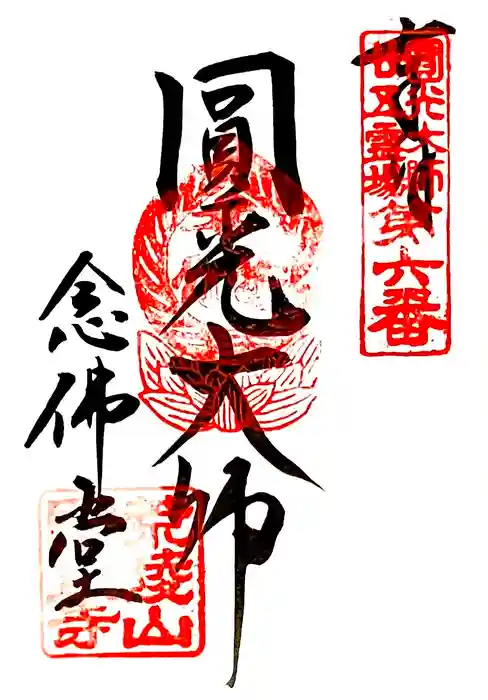 奉拝
圓光大師
廿五靈場
第六番
圓光大師
念佛堂
荒陵山
寺